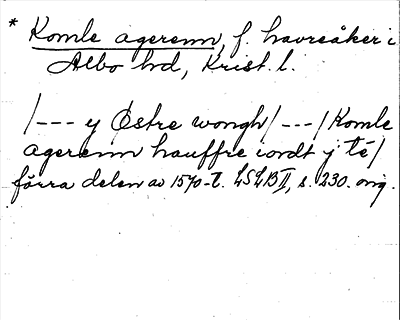 * Komle agerenn, f. havreåker i
Albo hd, Krist. l.
/--- y Østre wongh/ ---/ Komle
agerenn hauffre iordt j té/
förra delen av 1570-t. LSLB II, s. 230. orig.